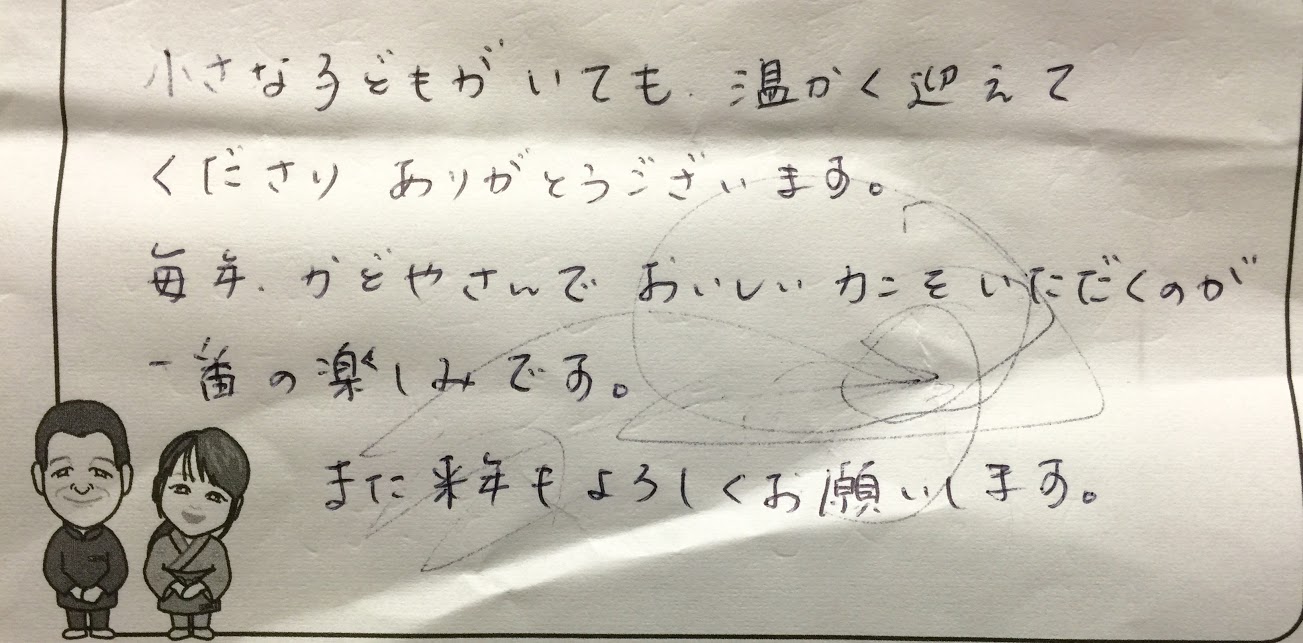 小さな子どもがいても、温かく迎えて
くださり ありがとうございます。
毎年、かどやさんで おいしいカニをいただくのが
一番の楽しみです。
また来年もよろしくお願いします。